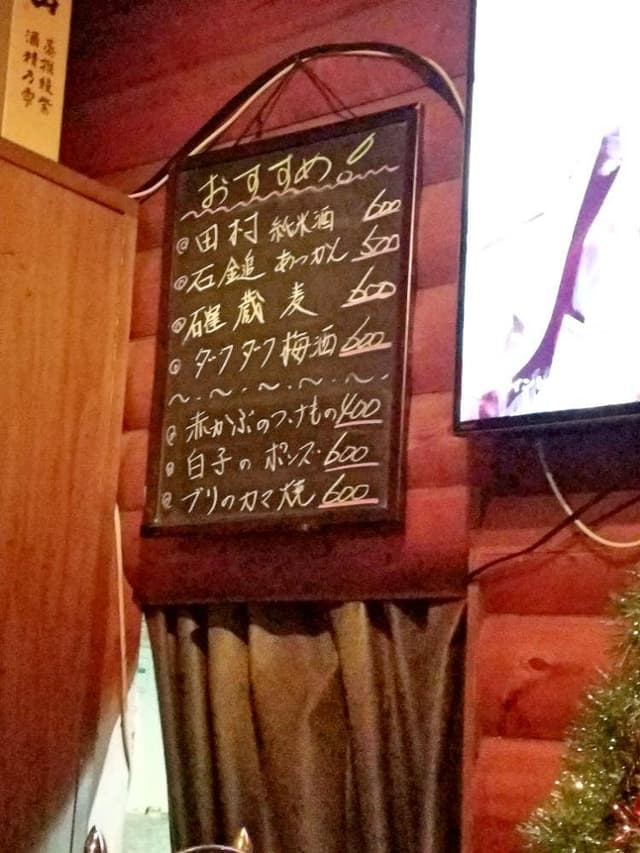 おすすめ
田村 純米酒 600
石鎚 あつかん 500
蔵 麦 600
ダフダフ梅酒 600
赤かぶのつけもの 400
白子のポンズ 600
ブリのカマ焼 600